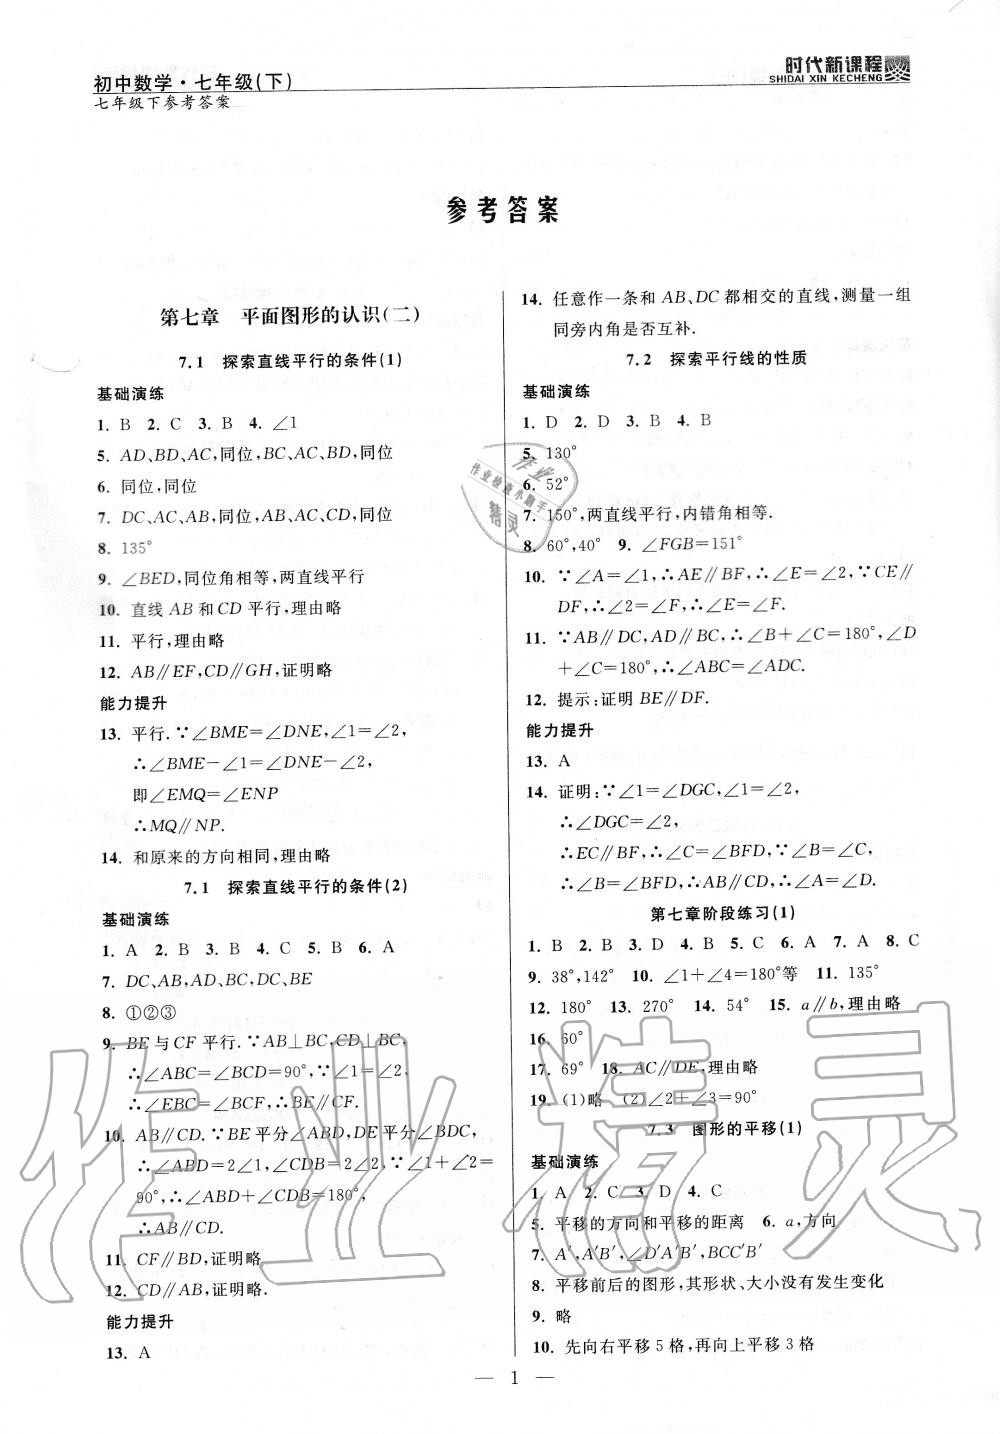 初中数学·七年级(下)
七年级下参考答案
时代新课程
SHIDAI XIN KECHENG
参考答案
第七章 平面图形的认识(二)
7.1 探索直线平行的条件(1)
基础演练
1. B 2. C 3. B 4. ∠1
5. AD、BD、AC,同位,BC、AC、BD,同位
6. 同位,同位
7. DC、AC、AB,同位,AB、AC、CD,同位
8. 135°
9. ∠BED,同位角相等,两直线平行
10. 直线 AB 和 CD 平行,理由略
11. 平行,理由略
12. AB∥EF,CD∥GH,证明略
能力提升
13. 平行.∵∠BME=∠DNE,∠1=∠2,
∴∠BME-∠1=∠DNE-∠2,
即∠EMQ=∠ENP
∴MQ∥NP.
14. 和原来的方向相同,理由略
7.1 探索直线平行的条件(2)
基础演练
1. A 2. B 3. B 4. C 5. B 6. A
7. DC、AB,AD、BC,DC、BE
8. ①②③
9. BE 与 CF 平行.∵AB⊥BC,CD⊥BC,
∴∠ABC=∠BCD=90°,∵∠1=∠2,
∴∠EBC=∠BCF,∴BE∥CF.
10. AB∥CD.∵BE平分∠ABD,DE平分∠BDC,
∴∠ABD=2∠1,∠CDB=2∠2,∵∠1+∠2=
90°,∴∠ABD+∠CDB=180°,
∴AB∥CD.
11. CF∥BD,证明略
12. CD∥AB,证明略.
能力提升
13. A
14. 任意作一条和 AB、DC 都相交的直线,测量一组
同旁内角是否互补.
7.2 探索平行线的性质
基础演练
1. D 2. D 3. B 4. B
5. 130°
6. 52°
7. 150°,两直线平行,内错角相等.
8. 60°,40° 9. ∠FGB=151°
10. ∵∠A=∠1,∴AE∥BF,∴∠E=∠2,∵CE∥
DF,∴∠2=∠F,∴∠E=∠F.
11. ∵AB∥DC,AD∥BC,∴∠B+∠C=180°,∠D
+∠C=180°,∴∠ABC=∠ADC.
12. 提示:证明 BE∥DF.
能力提升
13. A
14. 证明:∵∠1=∠DGC,∠1=∠2,
∴∠DGC=∠2,
∴EC∥BF,∴∠C=∠BFD,∵∠B=∠C,
∴∠B=∠BFD,∴AB∥CD,∴∠A=∠D.
第七章阶段练习(1)
1. B 2. B 3. D 4. B 5. C 6. A 7. A 8. C
9. 38°,142° 10. ∠1+∠4=180°等 11. 135°
12. 180° 13. 270° 14. 54° 15. a∥b,理由略
16. 60°
17. 69° 18. AC∥DE,理由略
19. (1)略 (2)∠2+∠3=90°
7.3 图形的平移(1)
基础演练
1. A 2. C 3. D 4. C
5. 平移的方向和平移的距离 6. a,方向
7. A′,A′B′,∠D′A′B′,BCC′B′
8. 平移前后的图形,其形状、大小没有发生变化
9. 略
10. 先向右平移 5 格,再向上平移 3 格
— 1 —
作业
作业检查小助手
精灵
作业精灵